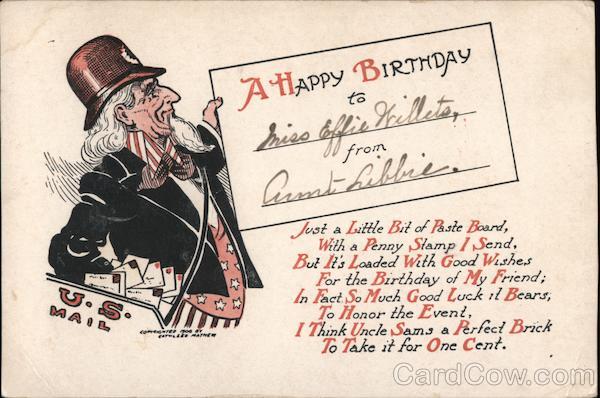 A Happy Birthday
to
Miss Effie Willets,
from
Aunt Libbie.
Just a Little Bit of Paste Board,
With a Penny Stamp I Send,
But It's Loaded With Good Wishes
For the Birthday of My Friend;
In Fact, So Much Good Luck it Bears,
To Honor the Event,
I Think Uncle Sam's a Perfect Brick
To Take it for One Cent.
U.S.
MAIL
COPYRIGHTED 1906 BY
KATHLEEN MATHEW
CardCow.com